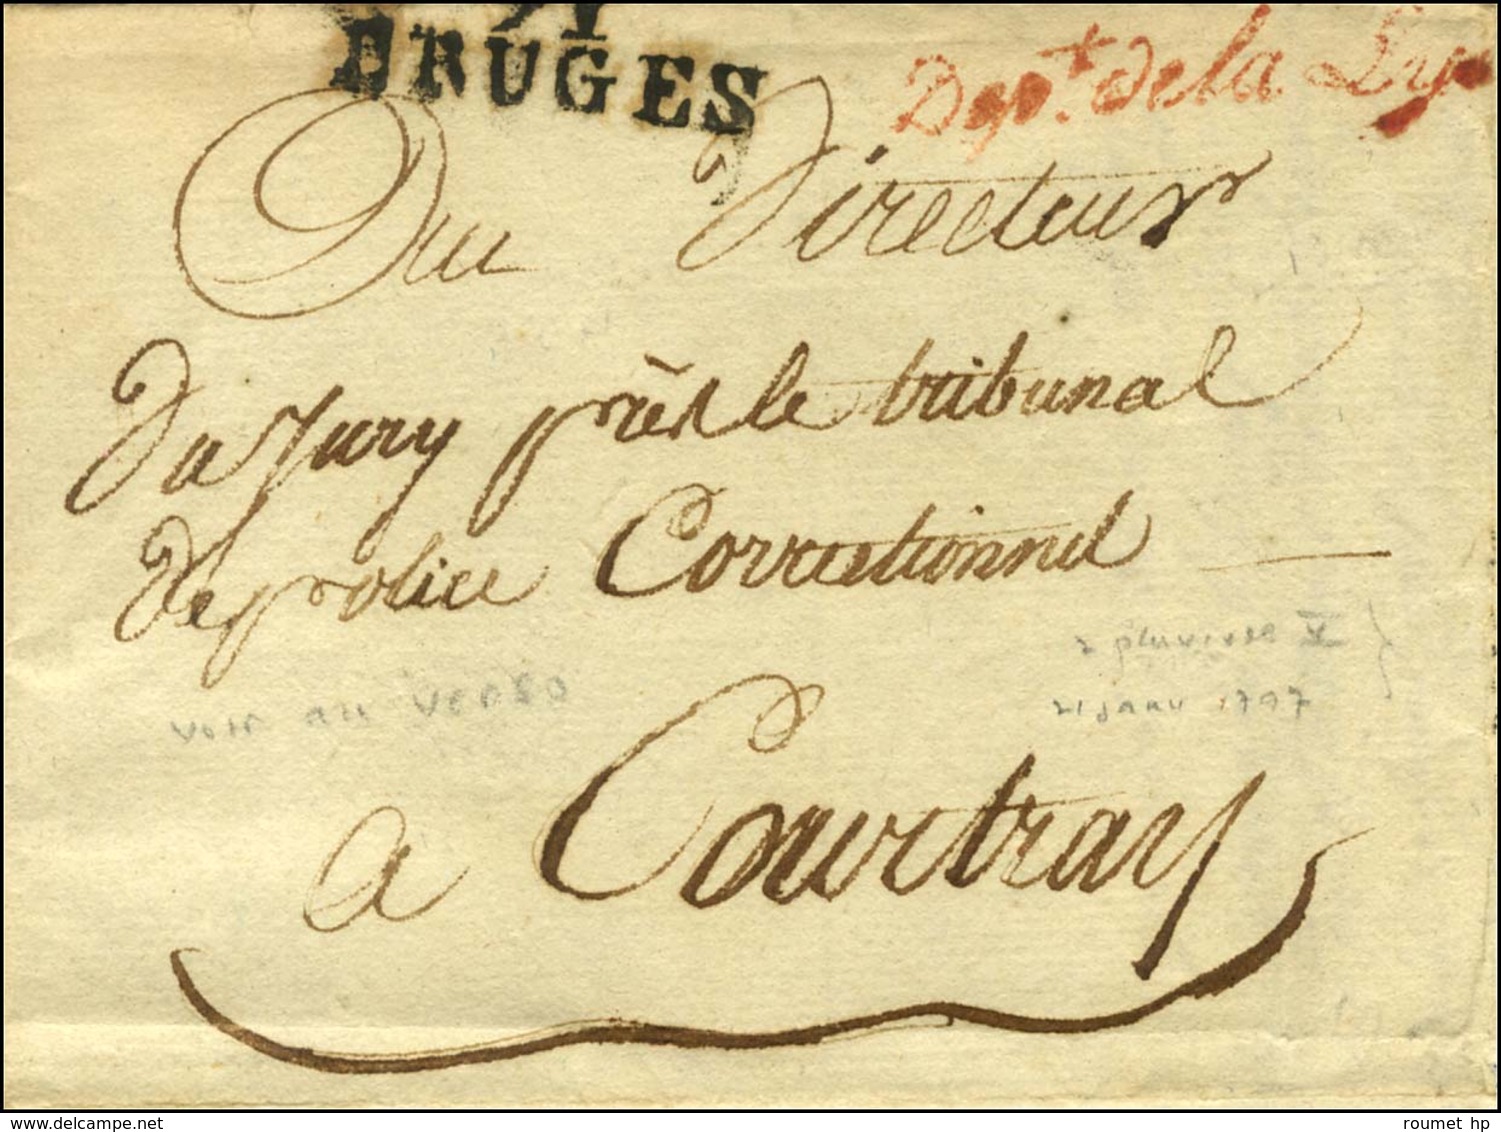 91
BRUGES
Dept. de la Lys
Au Directeur
Du Jury près le tribunal
de police Correctionnel
voir au verso
2 pluviose V
21 janv 1797
a Courtray
roumet hp